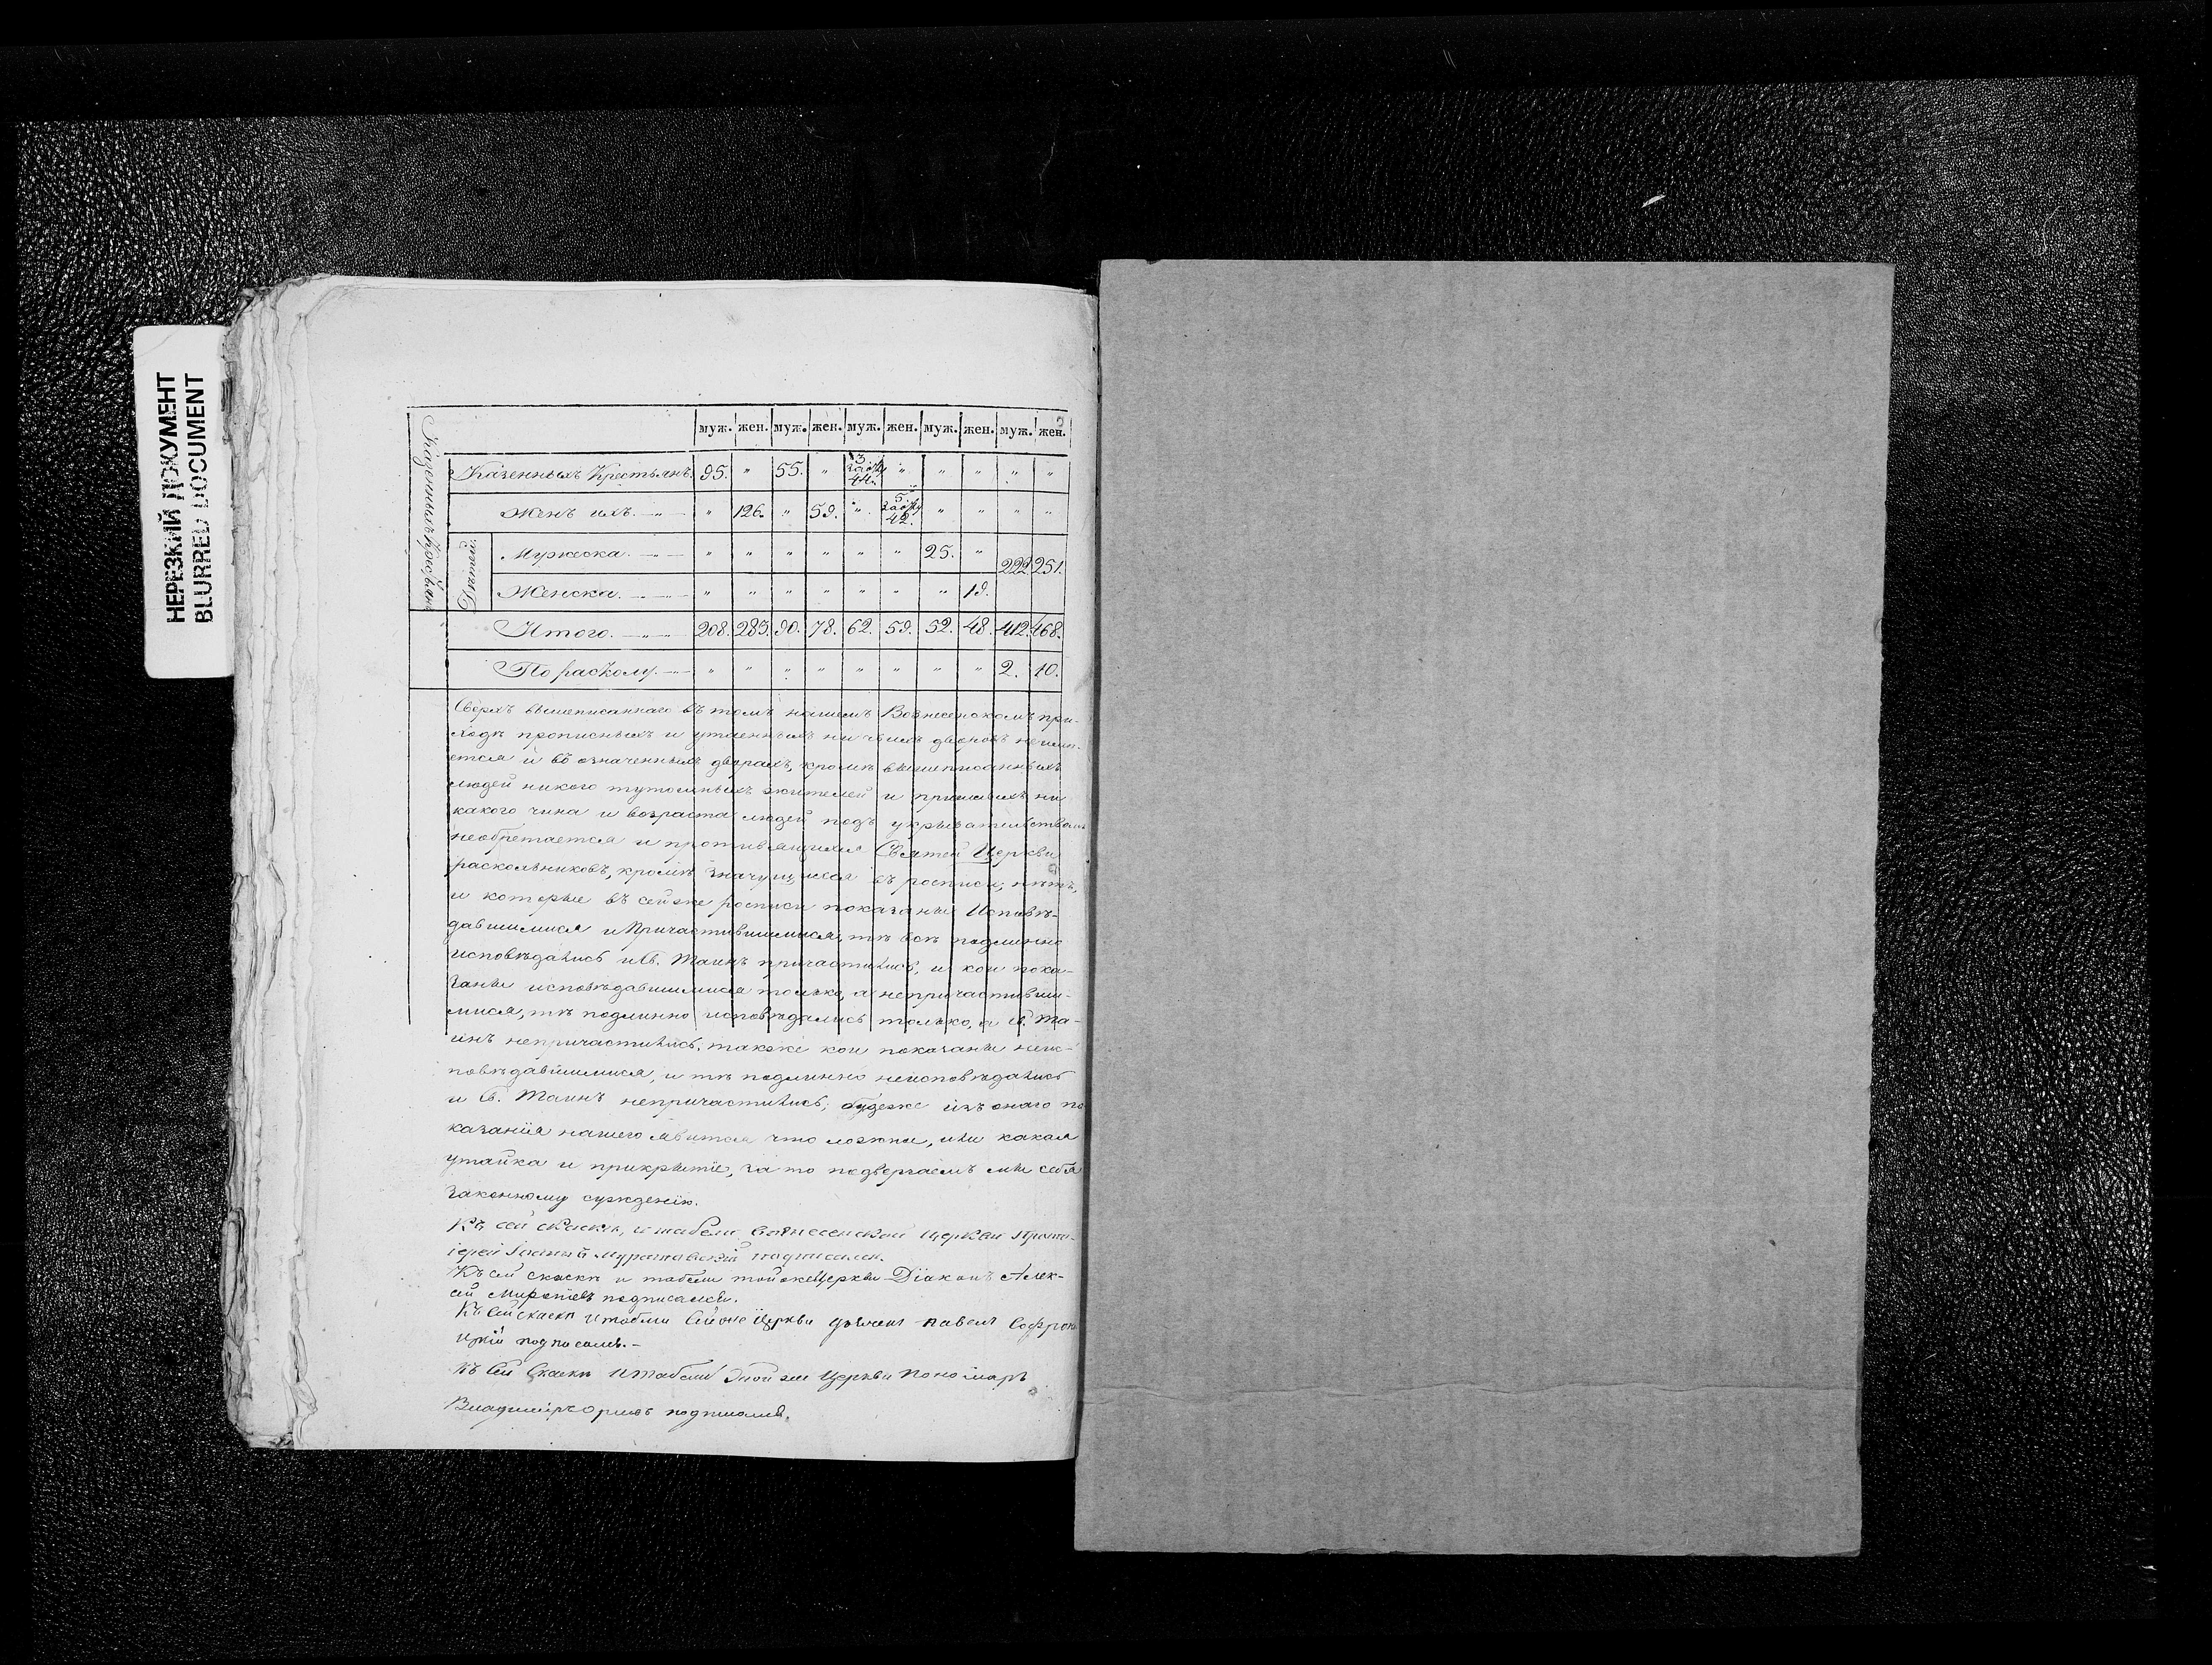 НЕРЕЗКИЙ ДОКУМЕНТ
BLURRED DOCUMENT
муж. жен. муж. жен. муж. жен. муж. жен. муж. жен.
Казенныхъ Крестьянъ. 95. " 55. " 3 44. " " " " "
Женъ ихъ. " 126. " 59. " 5 42. " " " "
Дѣтей
Мужеска. " " " " " " 25. " 222 251.
Женска. " " " " " " " 19.
Итого. 208. 283. 90. 78. 62. 59. 52. 48. 412. 468.
По расколу. " " " " " " " " 2. 10.
Сверхъ вышеписаннаго въ томъ нашемъ Вознесенскомъ при-
ходѣ прописныхъ и утаенныхъ ни чьихъ дворовъ неимѣ-
ется и въ означенныхъ дворахъ, кромѣ вышеписанныхъ
людей никого тутошныхъ жителей и пришлыхъ ни
какого чина и возраста людей подъ укрывательствомъ
необретается и противящихся Святей Церкви
раскольниковъ, кромѣ значущихся въ росписи, нѣтъ,
и которые въ сей же росписи показаны Исповѣ-
давшимися и Причастившимися, тѣ всѣ подлинно
исповѣдались и Св. Таинъ причастились, и кои пока-
заны исповѣдавшимися только, а непричастивши-
мися, тѣ подлинно исповѣдались только, а Св. Та-
инъ непричастились, также кои показаны неис-
повѣдавшимися, и тѣ подлинно неисповѣдались
и Св. Таинъ непричастились; будеже изъ онаго по
казанія нашего явится что ложно, или какая
утайка и прикрытіе, за то подвергаемъ мы себя
законному сужденію.
Къ сей скаскѣ, и табели Вознесенской церкви Прото-
іерей подписался.
Къ сей скаскѣ и табели тойже Церкви Діаконъ Алек-
сѣй подписался.
Къ сей скаскѣ и табели сей же Церкви дьячекъ Павелъ Софрон
ицкій подписался. -
Къ сей скаскѣ и табели той же Церкви Пономарь
Владимиръ Орловъ подписался.